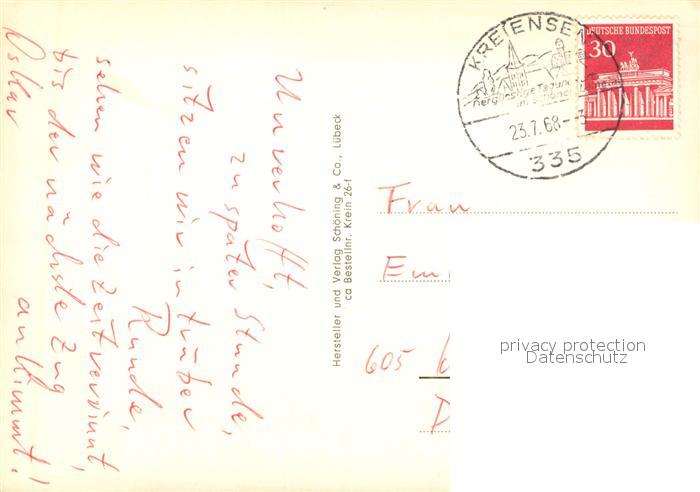 Unverhofft,
zu später Stunde,
sitzen wir in trüber
Runde,
sehen wie die Zeit verrinnt,
bis der nächste Zug
ankimmt!
Oskar
Hersteller und Verlag Schöning & Co., Lübeck
ca Bestellnr. Krein 26-f
KREIENSEN
im schönen
23.7.68-
335
DEUTSCHE BUNDESPOST
30
Frau
Em
605
D
privacy protection
Datenschutz